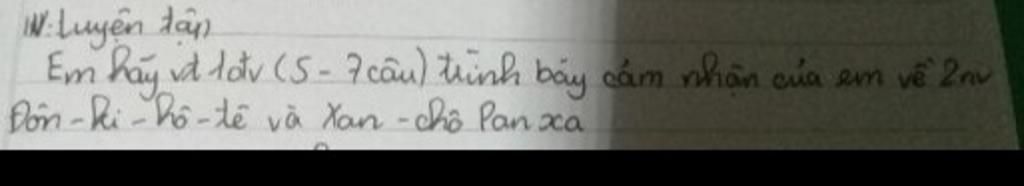 IV. Luyện tập
Em hãy vt 1đv (5 - 7 câu) trình bày cảm nhận của em về 2nv
Đôn - ki - hô - tê và Xan - chô Pan xa